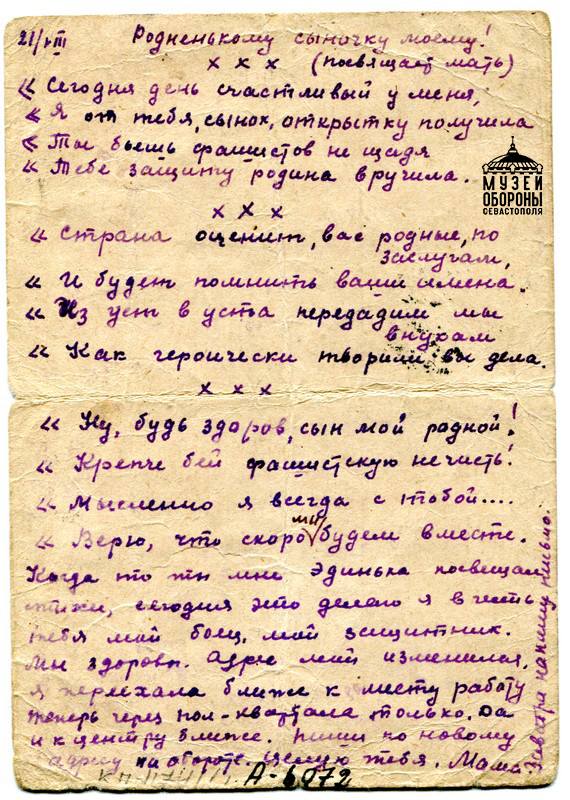 21/VIII Родненькому сыночку моему!
х х х (посвящает мать)
« Сегодня день счастливый у меня,
« Я от тебя, сынок, открытку получила
« Ты бьешь фашистов не щадя
« Тебе защиту родина вручила.
МУЗЕЙ
ОБОРОНЫ
СЕВАСТОПОЛЯ
х х х
« Страна оценит, вас родные, по
заслугам,
« И будет помнить ваши имена.
« Из уст в уста передадим мы
внукам
« Как героически творили вы дела.
х х х
« Ну, будь здоров, сын мой радной!
« Крепче бей фашистскую нечисть!
« Мысленно я всегда с тобой....
« Верю, что скоро мы будем вместе.
Когда то ты мне Эдинька посвещал
стихи, сегодня это делаю я в честь
тебя мой боец, мой защитник.
Мы здоровы. Адрес мой изменился,
я переехала ближе к месту работу
теперь через пол-квартала только. Да
и к центру ближе. Пиши по новому
адресу на обороте. Целую тебя. Мама
Завтра напишу письмо.
А-6072